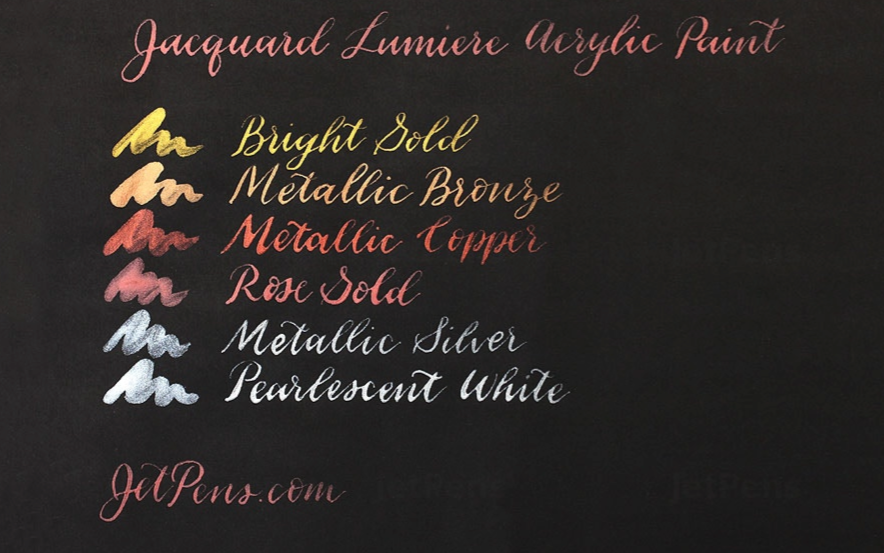 Jacquard Lumiere Acrylic Paint
Bright Gold
Metallic Bronze
Metallic Copper
Rose Gold
Metallic Silver
Pearlescent White
JetPens.com
JetPens
JetPens
JetPens